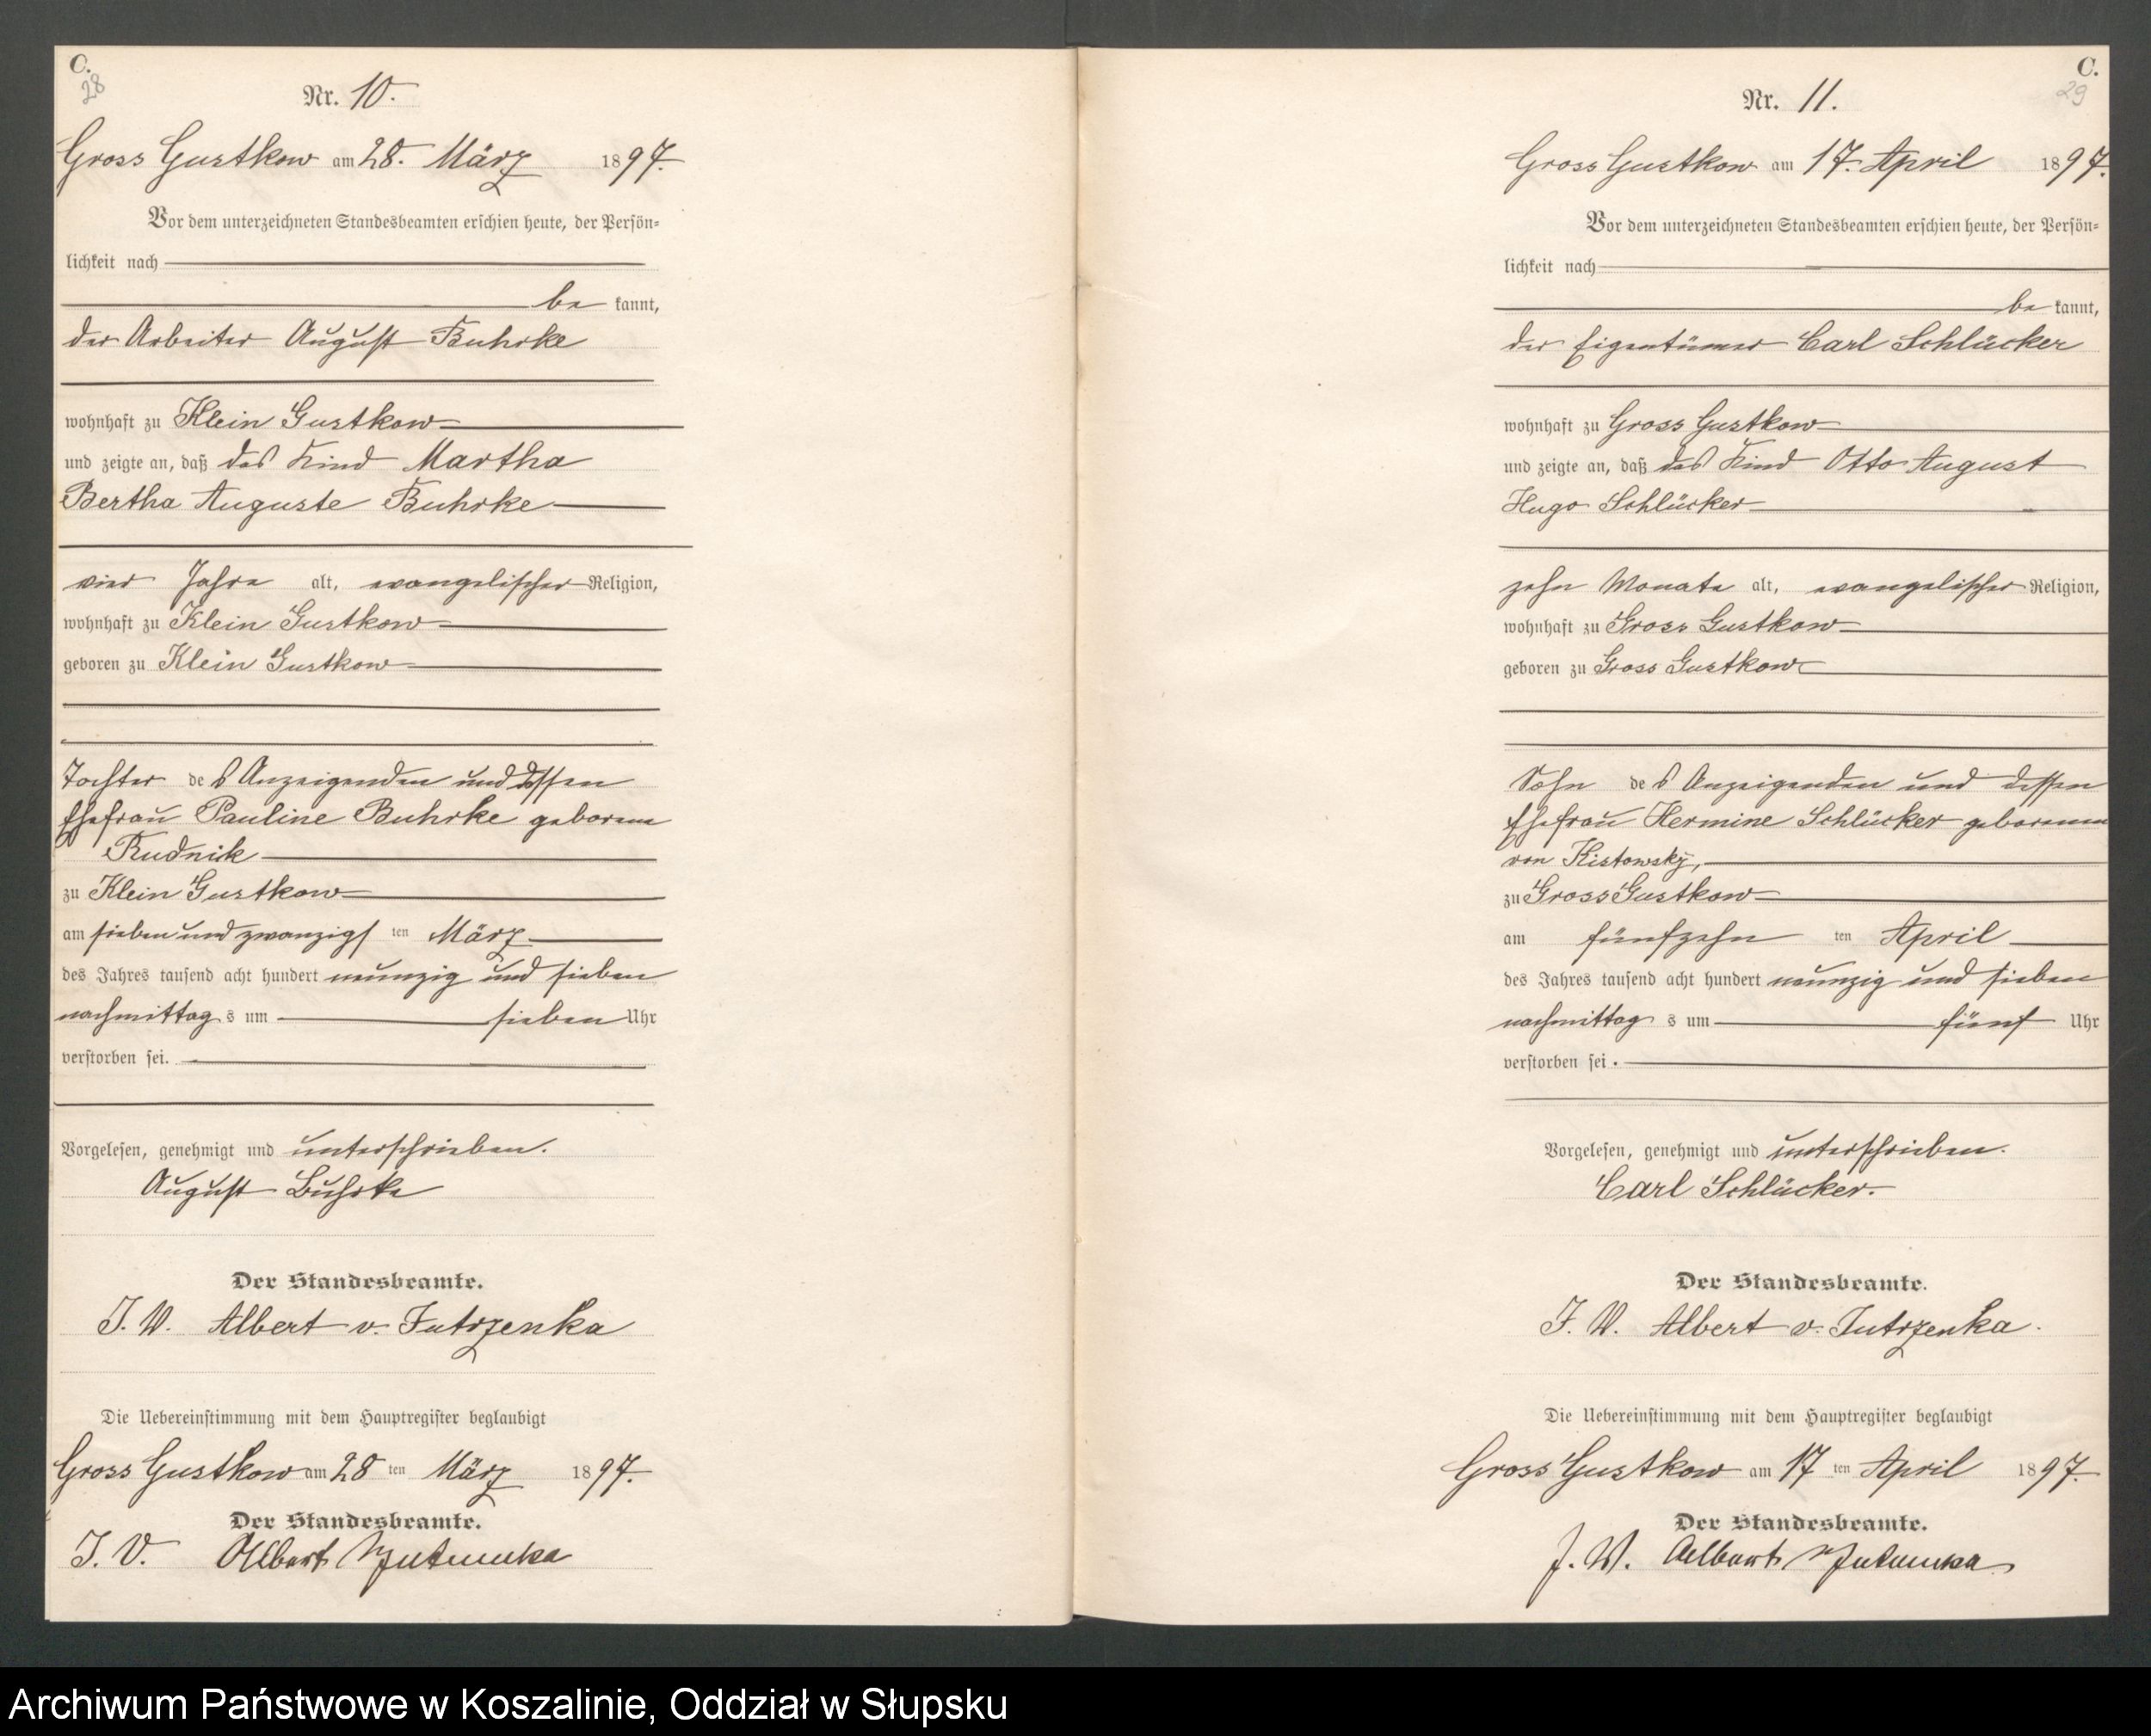 C.
28
Nr. 10.
Gross Gustkow am 28. März 1897.
Vor dem unterzeichneten Standesbeamten erschien heute, der Persön-
lichkeit nach
be kannt,
der Arbeiter August Buhrke
wohnhaft zu Klein Gustkow
und zeigte an, daß das Kind Martha
Bertha Auguste Buhrke
vier Jahre alt, evangelischer Religion,
wohnhaft zu Klein Gustkow
geboren zu Klein Gustkow
Tochter des Anzeigenden und dessen
Ehefrau Pauline Buhrke geborene
Rudnik
zu Klein Gustkow
am sieben und zwanzigsten März
des Jahres tausend acht hundert neunzig und sieben
nachmittags um sieben Uhr
verstorben sei.
Vorgelesen, genehmigt und unterschrieben.
August Buhrke
Der Standesbeamte.
J. V. Albert v. Jutrzenka
Die Uebereinstimmung mit dem Hauptregister beglaubigt
Gross Gustkow am 28 ten März 1897.
Der Standesbeamte.
J. V. Albert v Jutrzenka
C.
29
Nr. 11.
Gross Gustkow am 17. April 1897.
Vor dem unterzeichneten Standesbeamten erschien heute, der Persön-
lichkeit nach
be kannt,
der Eigentümer Carl Schlücker
wohnhaft zu Gross Gustkow
und zeigte an, daß das Kind Otto August
Hugo Schlücker
zehn Monate alt, evangelischer Religion,
wohnhaft zu Gross Gustkow
geboren zu Gross Gustkow
Sohn des Anzeigenden und dessen
Ehefrau Hermine Schlücker geborenen
von Kistowsky,
zu Gross Gustkow
am fünfzehn ten April
des Jahres tausend acht hundert neunzig und sieben
nachmittags um fünf Uhr
verstorben sei.
Vorgelesen, genehmigt und unterschrieben.
Carl Schlücker.
Der Standesbeamte.
J. V. Albert v. Jutrzenka.
Die Uebereinstimmung mit dem Hauptregister beglaubigt
Gross Gustkow am 17 ten April 1897.
Der Standesbeamte.
J. V. Albert v Jutrzenka
Archiwum Państwowe w Koszalinie, Oddział w Słupsku